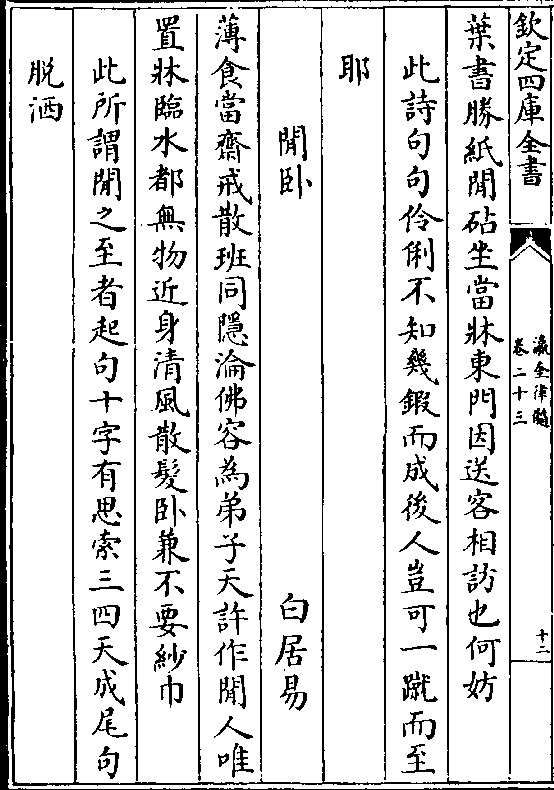 欽定四庫全書
瀛奎律髓
卷二十三
十二
葉書勝紙閒砧坐當牀東門因送客相訪也何妨
此詩句句伶俐不知幾鍜而成後人豈可一蹴而至
耶
閒卧
白居易
薄食當齋戒散班同隱淪佛容為弟子天許作閒人唯
置牀臨水都無物近身清風散髮卧兼不要紗巾
此所謂閒之至者起句十字有思索三四天成尾句
脱洒